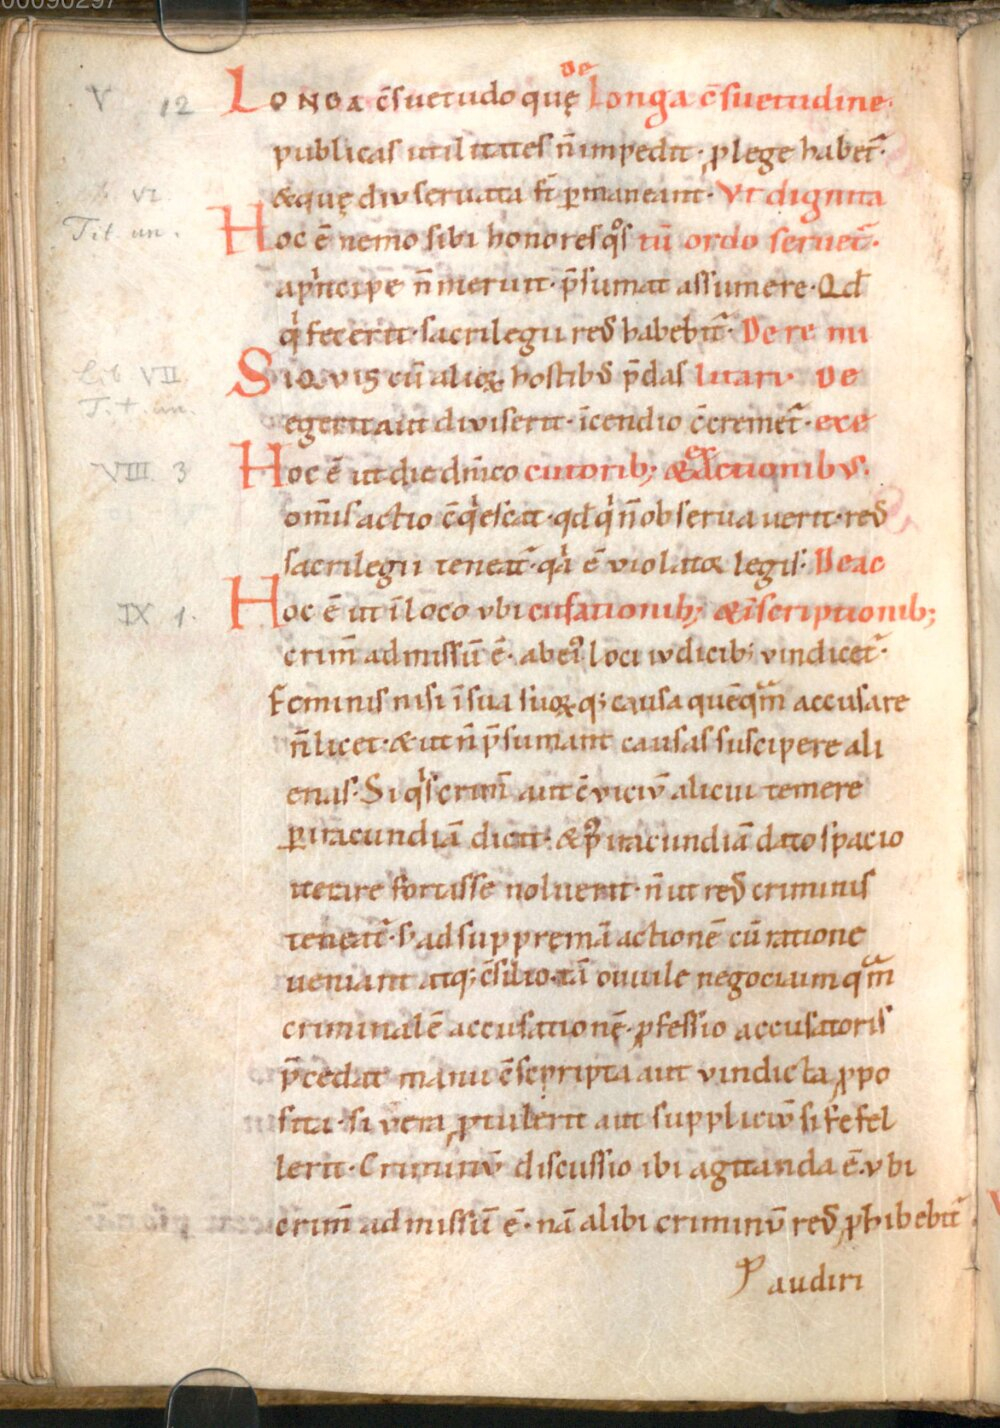 00090297
V 12 LONGA c̄suetudo quę De Longa c̄suetudine·
publicas utilitates n̄ impedit· ꝓ lege habet̄·
&quę diu seruata st̄ ꝑmaneant· Vt dignita
VI
Tit. un. Hoc ē nemo sibi honores qͦs tū ordo seruet̄·
a pͥncipe n̄ meruit· p̄sumat assumere· Qd
qͥ fecerit· sacrilegii reꝰ habebit̄· De re mi
Lib VII SiQVIS cū aliqͦꝝ hostibꝰ p̄das litari· De
T.t. un.
egerit aut diuiserit· īcendio c̄cremet̄· exe
VIII 3 Hoc ē ut die dn̄ico cutorib; & exactionibus·
om̄is actio c̄qͥescat· qd qͥ n̄ obseruauerit· reꝰ
sacrilegii teneat̄· qͣ ē violator legis· De ac
IX 1. Hoc ē ut ī loco vbi cusationib; & īscriptionib;
crim̄ admissū ē· ab eiꝰ loci iudicib; vindicet̄·
Feminis nisi ī sua suoꝝq; causa quēqͣm accusare
n̄ licet· & ut n̄ p̄sumant causas suscipere ali
enas· Si qͥs crim̄ aut c̄viciū alicui temere
ꝑ iracundiā dicit· & p̄ iracundiā dato spacio
iterare fortisse noluerit· n̄ ut reꝰ criminis
teneat̄· s; ad suppremā actionē cū ratione
ueniant atq; c̄silio· tā ciuile negocium qͣm
criminalē accusationę· ꝓfessio accusatoris
p̄cedat manu c̄scripta aut vindicta ꝓpo
sita· si vera ꝓtulerit aut suppliciū si fefel
lerit· Criminū discussio ibi agitanda ē· vbi
crim̄ admissū ē· nā alibi criminū reꝰ ꝓhibebit̄
audiri